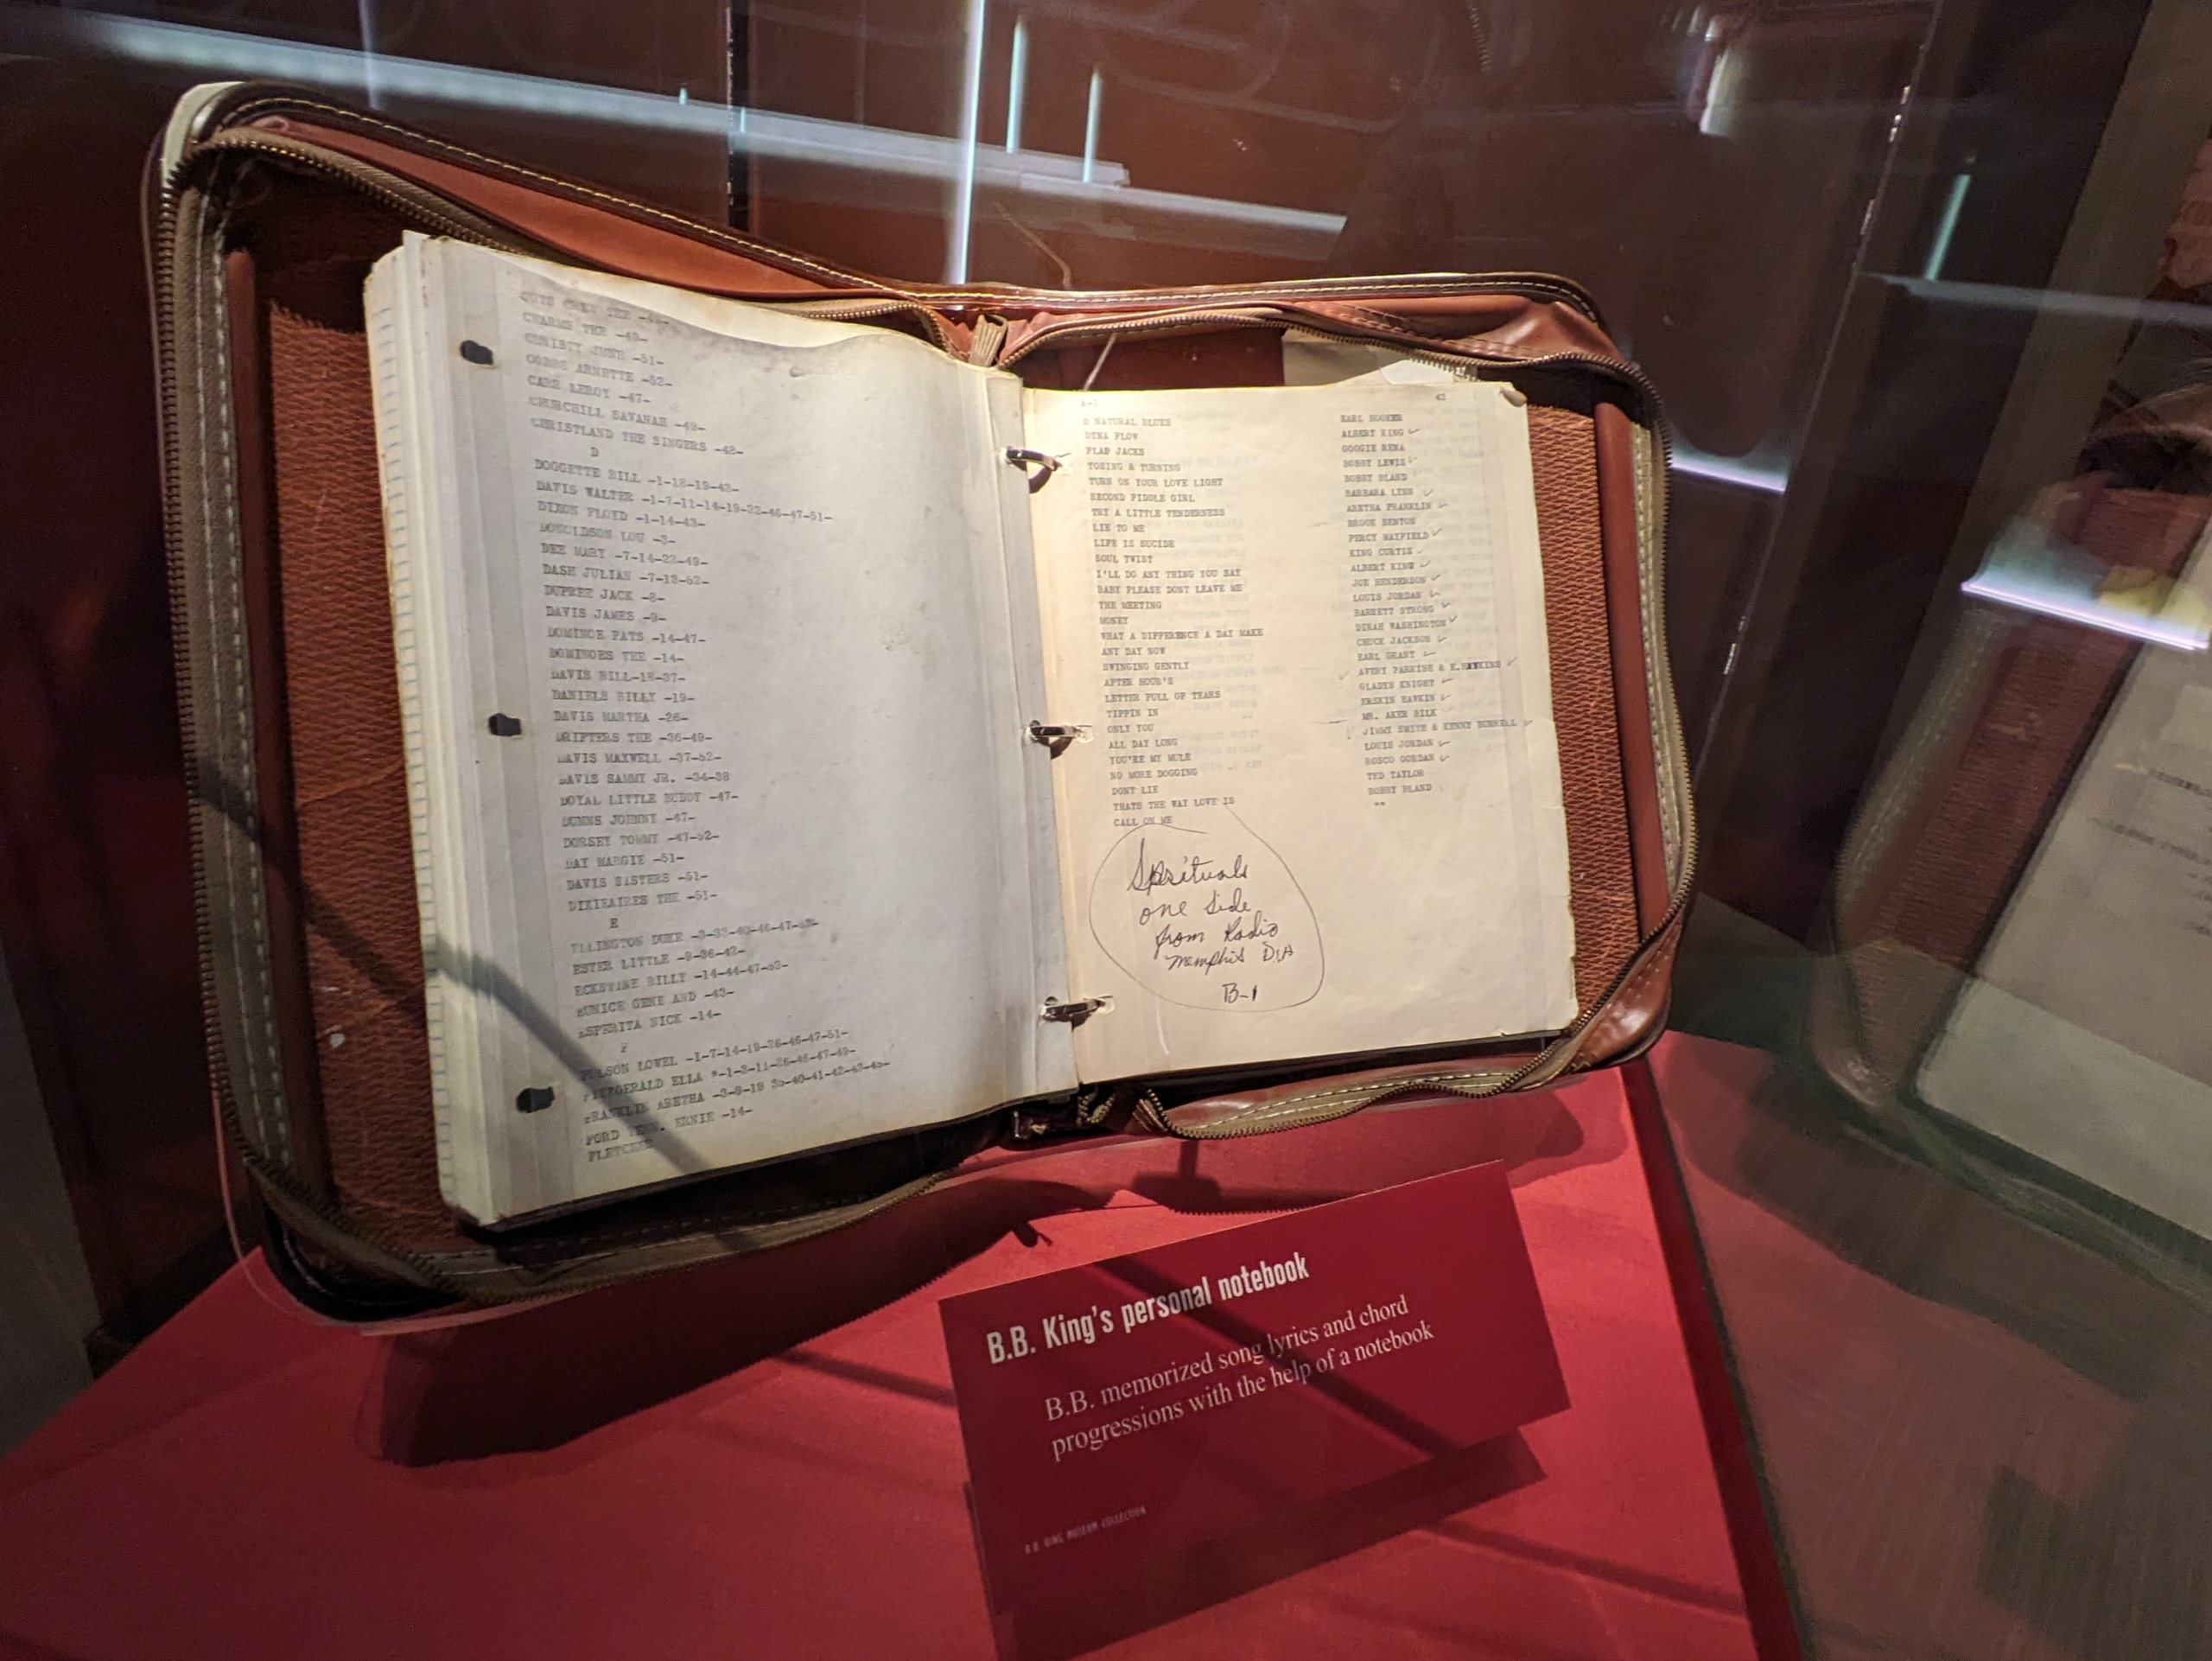 CHARMS THE -49-
CHRISTY JUNE -51-
COBBS ARNETTE -52-
CARR LEROY -47-
CHURCHILL SAVANAH -49-
CHRISTLAND THE SINGERS -48-
D
DOGGETTE BILL -1-18-19-43-
DAVIS WALTER -1-7-11-14-19-22-46-47-51-
DIXON FLOYD -1-14-43-
DONOLDSON LOU -3-
DEE MARY -7-14-22-49-
DASH JULIAN -7-12-52-
DUPREE JACK -8-
DAVIS JAMES -9-
DOMINOE FATS -14-47-
DOMINOES THE -14-
DAVIS BILL-18-37-
DANIELS BILLY -19-
DAVIS MARTHA -26-
DRIFTERS THE -36-49-
DAVIS MAXWELL -37-52-
DAVIS SAMMY JR. -34-38
DOYAL LITTLE BUDDY -47-
DUNNS JOHNNY -47-
DORSEY TOMMY -47-52-
DAY MARGIE -51-
DAVIS SISTERS -51-
DIXIEAIRES THE -51-
E
ELLINGTON DUKE
ESTER LITTLE -9-36-42-
ECKSTINE BILLY -14-44-47-52-
EUNICE GENE AND -43-
ESPERITA NICK -14-
F
FULSON LOWEL -1-7-14-19-26-46-47-51-
FITZGERALD ELLA
FRANKLIN ARETHA
FORD ERNIE -14-
A-1 42
D NATURAL BLUES EARL HOOKER
DYNA FLOW ALBERT KING
FLAP JACKS GOOGIE RENA
TOSING & TURNING BOBBY LEWIS
TURN ON YOUR LOVE LIGHT BOBBY BLAND
SECOND FIDDLE GIRL BARBARA LYNN
TRY A LITTLE TENDERNESS ARETHA FRANKLIN
LIE TO ME BROOK BENTON
LIFE IS SUCIDE PERCY MAYFIELD
SOUL TWIST KING CURTIS
I'LL DO ANY THING YOU SAY ALBERT KING
BABY PLEASE DONT LEAVE ME JOE HENDERSON
THE MEETING LOUIS JORDAN
MONEY BARRETT STRONG
WHAT A DIFFERENCE A DAY MAKE DINAH WASHINGTON
ANY DAY NOW CHUCK JACKSON
SWINGING GENTLY EARL GRANT
AFTER HOUR'S AVERY PARRISH & E.HAWKINS
LETTER FULL OF TEARS GLADYS KNIGHT
TIPPIN IN ERSKIN HAWKIN
ONLY YOU MR. AKER BILK
ALL DAY LONG JIMMY SMITH & KENNY BURRELL
YOU'RE MY MULE LOUIS JORDAN
NO MORE DOGGING ROSCO GORDAN
DONT LIE TED TAYLOR
THATS THE WAY LOVE IS BOBBY BLAND
CALL ON ME ""
Sprituals
one side
from Radio
Memphis DIA
B-1
B.B. King's personal notebook
B.B. memorized song lyrics and chord
progressions with the help of a notebook
B.B. KING MUSEUM COLLECTION